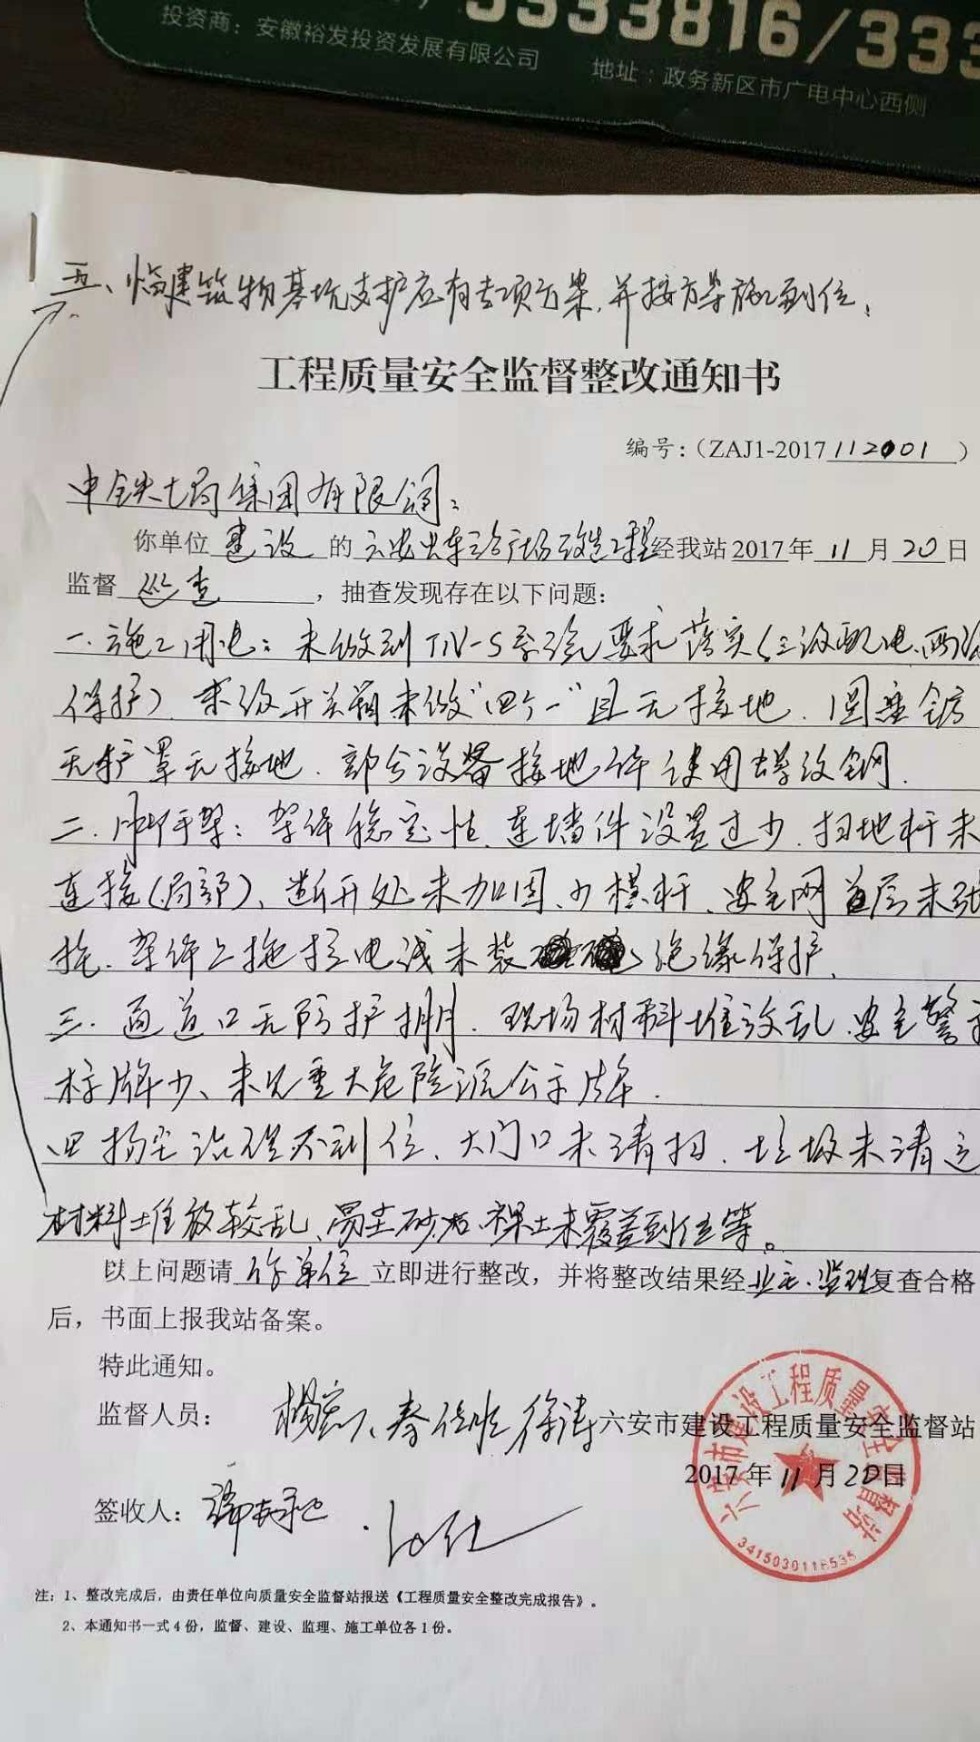 5333816/333
投资商：安徽裕发投资发展有限公司
地址：政务新区市广电中心西侧
五、临建筑物基坑支护应有专项方案，并按方案施工到位。
工程质量安全监督整改通知书
编号：（ZAJ1-2017112001）
中铁七局集团有限公司：
你单位 建设 的 六安火车站广场改造工程经我站 2017 年 11 月 20 日
监督 巡查 ，抽查发现存在以下问题：
一.施工用电：未做到TN-S系统要求落实（三级配电、两级
保护）、末级开关箱未做"四个一"且无接地．圆盘锯
无护罩无接地．部分设备接地体使用螺纹钢．
二．脚手架：架体稳定性、连墙件设置过少．扫地杆未
连接（局部）、断开处未加固、少横杆、安全网首层未张
挂．架体上拖拉电线未装绝缘保护．
三．通道口无防护棚．现场材料堆放乱．安全警示
标牌少、未见重大危险源公示牌．
四 扬尘治理不到位、大门口未清扫．垃圾未清运
材料堆放较乱、易尘砂石、裸土未覆盖到位等。
以上问题请 你单位 立即进行整改，并将整改结果经业主、监理复查合格
后，书面上报我站备案。
特此通知。
监督人员： 徐涛 六安市建设工程质量安全监督站
2017 年 11 月 20日
签收人：
六安市建设工程质量安全监督站
注：1、整改完成后，由责任单位向质量安全监督站报送《工程质量安全整改完成报告》。
2、本通知书一式 4 份，监督、建设、监理、施工单位各 1 份。